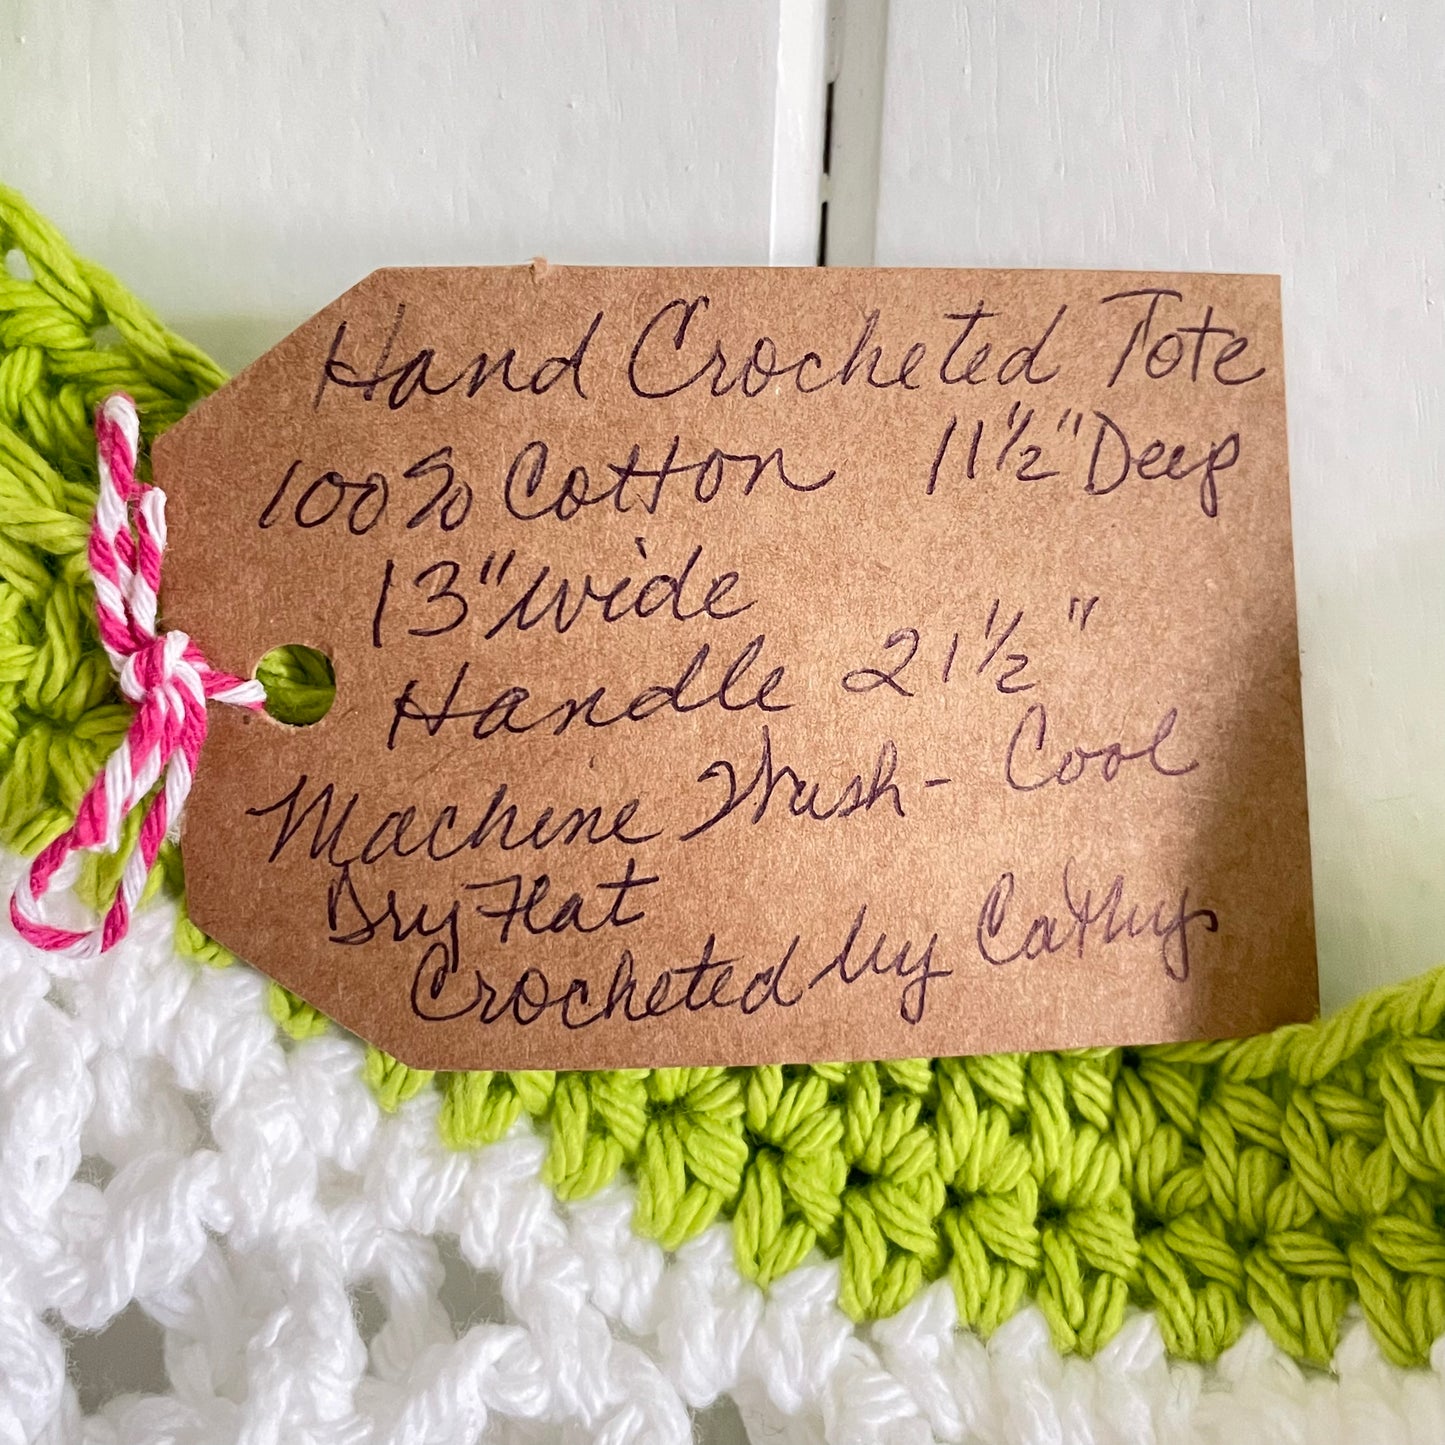 Hand Crocheted Tote
100% Cotton 11 1/2" Deep
13" wide
Handle 21 1/2"
Machine Wash - Cool
Dry Flat
Crocheted by Cathy